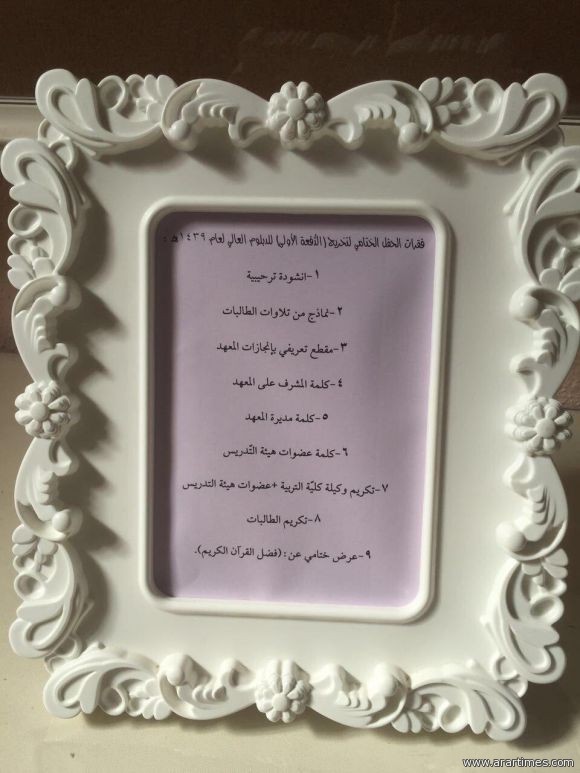 فقرات الحفل الختامي لتخريج (الدُّفعة الأولى) للدبلوم العالي لعام ١٤٣٩هـ :
١-انشودة ترحيبية
٢-نماذج من تلاوات الطالبات
٣-مقطع تعريفي بإنجازات المعهد
٤-كلمة المشرف على المعهد
٥-كلمة مديرة المعهد
٦-كلمة عضوات هيئة التّدريس
٧-تكريم وكيلة كليّة التربية +عضوات هيئة التدريس
٨-تكريم الطالبات
٩-عرض ختامي عن: (فضل القرآن الكريم).
www.arartimes.com